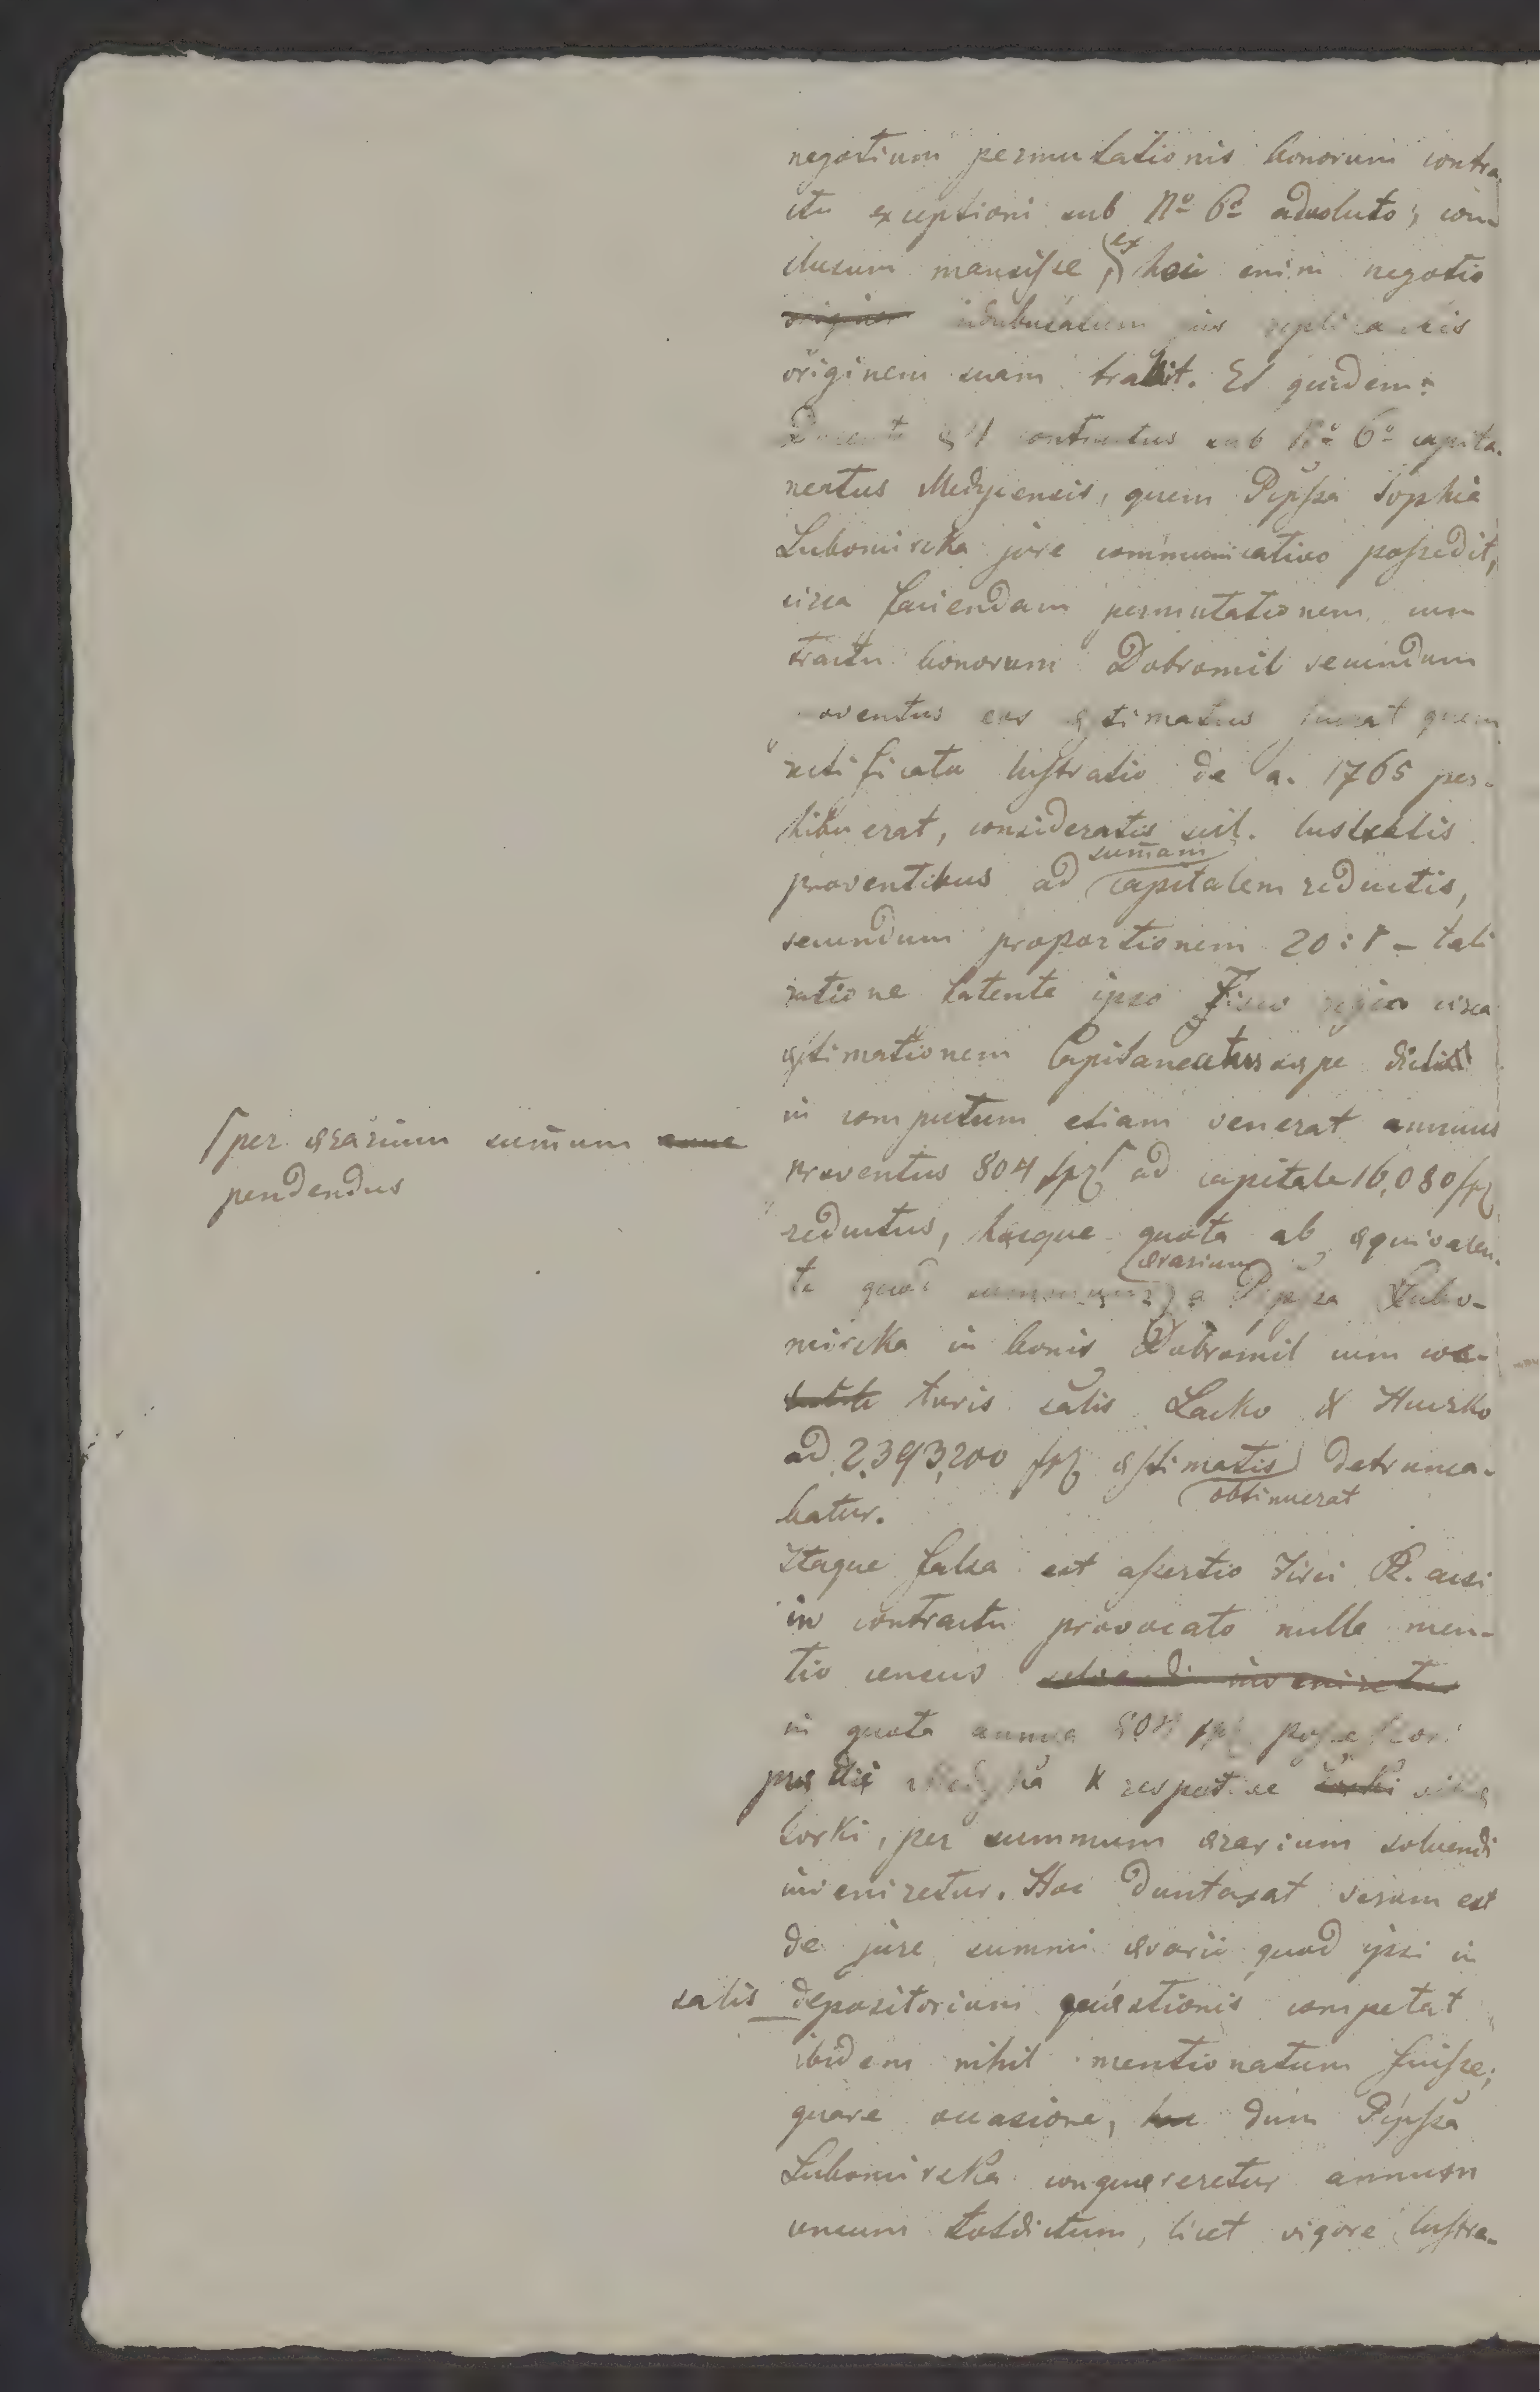 negotium permutationis bonorum contra
ctu exceptioni sub No 6o advoluto, con
clusum mansisse, ex hoc enim negotio
origin indubitatum jus replicantis
originem suam trahit. Et quidem:
contractus sub No 6o capita.
neatus Medycensis, quem Pcipssa Sophia
Lubomirska jure communicativo possedit,
circa faciendam permutationem cum
tractu bonorum Dobromil secundum
proventus eos æstimatus fuerat quem
rectificata lustratio de a. 1765 per-
hibuerat, consideratis scil. lustralis
proventibus ad summam capitalem reductis,
secundum proportionem 20:1 – tali
ratione latente ipso Fisco regio circa
æstimationem Capitaneatus sæpe dicti
in computum etiam venerat annuus
proventus 804 fpl ad capitale 16,080 fpl
reductus, hæcque quota ab æquivalen.
te quod summum ærarium a Pcipssa Lubo-
mirska in bonis Dobromil cum coc-
turis salis Lacko & Huczko
ad 2,393,200 fpl æstimatis detrunca-
obtinuerat
batur.
Itaque falsa est assertio Fisci R. acsi
in contractu provocato nulla men-
tio census solvendi inveniretur
in quota annua 804 fpl possessori
prædii Medyka & respective
Torki, per summum ærarium solvendi
inveniretur. Hoc duntaxat verum est
de jure summi ærarii quod ipsi in
salis depositorium quæstionis competat
ibidem nihil mentionatum fuisse;
quare occasione, hac dum Pcipssa
Lubomirska conquereretur annuum
censum totdictum, licet vigore lustra-
per ærarium sumum
pendendus